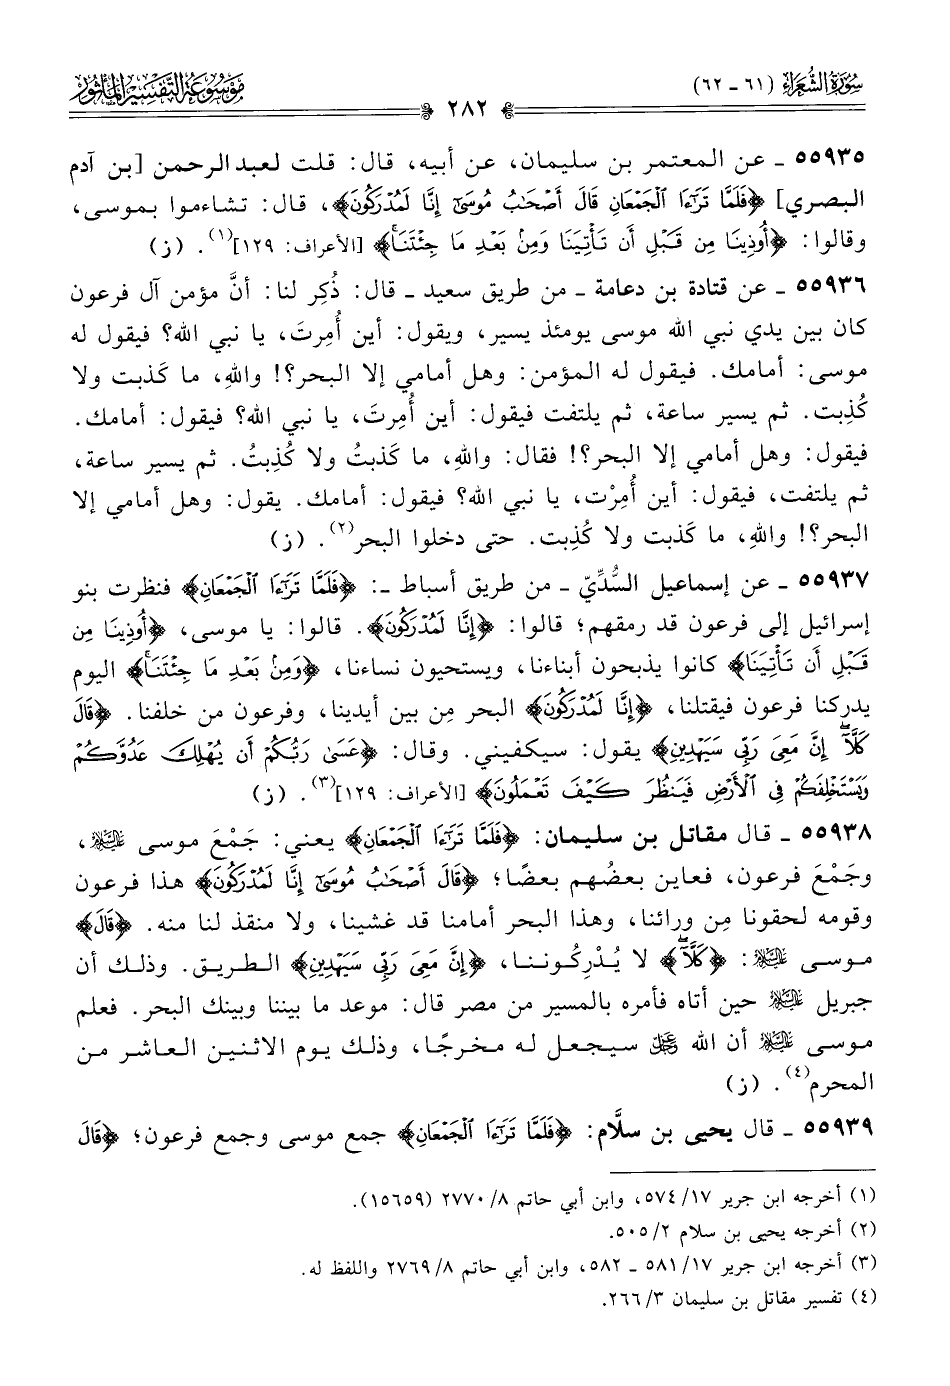 سورة الشعراء (٦١ - ٦٢)
٢٨٢
موسوعة التفسير المأثور
٥٥٩٣٥ - عن المعتمر بن سليمان، عن أبيه، قال: قلت لعبد الرحمن [بن آدم
البصري] ﴿فَلَمَّا تَرَٰٓءَا ٱلۡجَمۡعَانِ قَالَ أَصۡحَٰبُ مُوسَىٰٓ إِنَّا لَمُدۡرَكُونَ﴾، قال: تشاءموا بموسى،
وقالوا: ﴿أُوذِينَا مِن قَبۡلِ أَن تَأۡتِيَنَا وَمِنۢ بَعۡدِ مَا جِئۡتَنَاۚ﴾ [الأعراف: ١٢٩]⁽¹⁾. (ز)
٥٥٩٣٦ - عن قتادة بن دعامة - من طريق سعيد - قال: ذُكِر لنا: أنَّ مؤمن آل فرعون
كان بين يدي نبي الله موسى يومئذ يسير، ويقول: أين أُمِرتَ، يا نبي الله؟ فيقول له
موسى: أمامك. فيقول له المؤمن: وهل أمامي إلا البحر؟! واللهِ، ما كَذبت ولا
كُذِبت. ثم يسير ساعة، ثم يلتفت فيقول: أين أُمِرتَ، يا نبي الله؟ فيقول: أمامك.
فيقول: وهل أمامي إلا البحر؟! فقال: واللهِ، ما كَذبتُ ولا كُذِبتُ. ثم يسير ساعة،
ثم يلتفت، فيقول: أين أُمِرْت، يا نبي الله؟ فيقول: أمامك. يقول: وهل أمامي إلا
البحر؟! واللهِ، ما كَذبت ولا كُذِبت. حتى دخلوا البحر⁽²⁾. (ز)
٥٥٩٣٧ - عن إسماعيل السُّدِّيّ - من طريق أسباط -: ﴿فَلَمَّا تَرَٰٓءَا ٱلۡجَمۡعَانِ﴾ فنظرت بنو
إسرائيل إلى فرعون قد رمقهم؛ قالوا: ﴿إِنَّا لَمُدۡرَكُونَ﴾. قالوا: يا موسى، ﴿أُوذِينَا مِن
قَبۡلِ أَن تَأۡتِيَنَا﴾ كانوا يذبحون أبناءنا، ويستحيون نساءنا، ﴿وَمِنۢ بَعۡدِ مَا جِئۡتَنَاۚ﴾ اليوم
يدركنا فرعون فيقتلنا، ﴿إِنَّا لَمُدۡرَكُونَ﴾ البحر مِن بين أيدينا، وفرعون من خلفنا. ﴿قَالَ
كَلَّآۖ إِنَّ مَعِيَ رَبِّي سَيَهۡدِينِ﴾ يقول: سيكفيني. وقال: ﴿عَسَىٰ رَبُّكُمۡ أَن يُهۡلِكَ عَدُوَّكُمۡ
وَيَسۡتَخۡلِفَكُمۡ فِي ٱلۡأَرۡضِ فَيَنظُرَ كَيۡفَ تَعۡمَلُونَ﴾ [الأعراف: ١٢٩]⁽³⁾. (ز)
٥٥٩٣٨ - قال مقاتل بن سليمان: ﴿فَلَمَّا تَرَٰٓءَا ٱلۡجَمۡعَانِ﴾ يعني: جَمْعَ موسى عليه السلام،
وجَمْعَ فرعون، فعاين بعضُهم بعضًا؛ ﴿قَالَ أَصۡحَٰبُ مُوسَىٰٓ إِنَّا لَمُدۡرَكُونَ﴾ هذا فرعون
وقومه لحقونا مِن ورائنا، وهذا البحر أمامنا قد غشينا، ولا منقذ لنا منه. ﴿قَالَ﴾
موسى عليه السلام: ﴿كَلَّآۖ﴾ لا يُدْرِكُوننا، ﴿إِنَّ مَعِيَ رَبِّي سَيَهۡدِينِ﴾ الطريق. وذلك أن
جبريل عليه السلام حين أتاه فأمره بالمسير من مصر قال: موعد ما بيننا وبينك البحر. فعلم
موسى عليه السلام أن الله عز وجل سيجعل له مخرجًا، وذلك يوم الاثنين العاشر من
المحرم⁽⁴⁾. (ز)
٥٥٩٣٩ - قال يحيى بن سلَّام: ﴿فَلَمَّا تَرَٰٓءَا ٱلۡجَمۡعَانِ﴾ جمع موسى وجمع فرعون؛ ﴿قَالَ
(١) أخرجه ابن جرير ١٧/ ٥٧٤، وابن أبي حاتم ٨/ ٢٧٧٠ (١٥٦٥٩).
(٢) أخرجه يحيى بن سلام ٢/ ٥٠٥.
(٣) أخرجه ابن جرير ١٧/ ٥٨١ - ٥٨٢، وابن أبي حاتم ٨/ ٢٧٦٩ واللفظ له.
(٤) تفسير مقاتل بن سليمان ٣/ ٢٦٦.